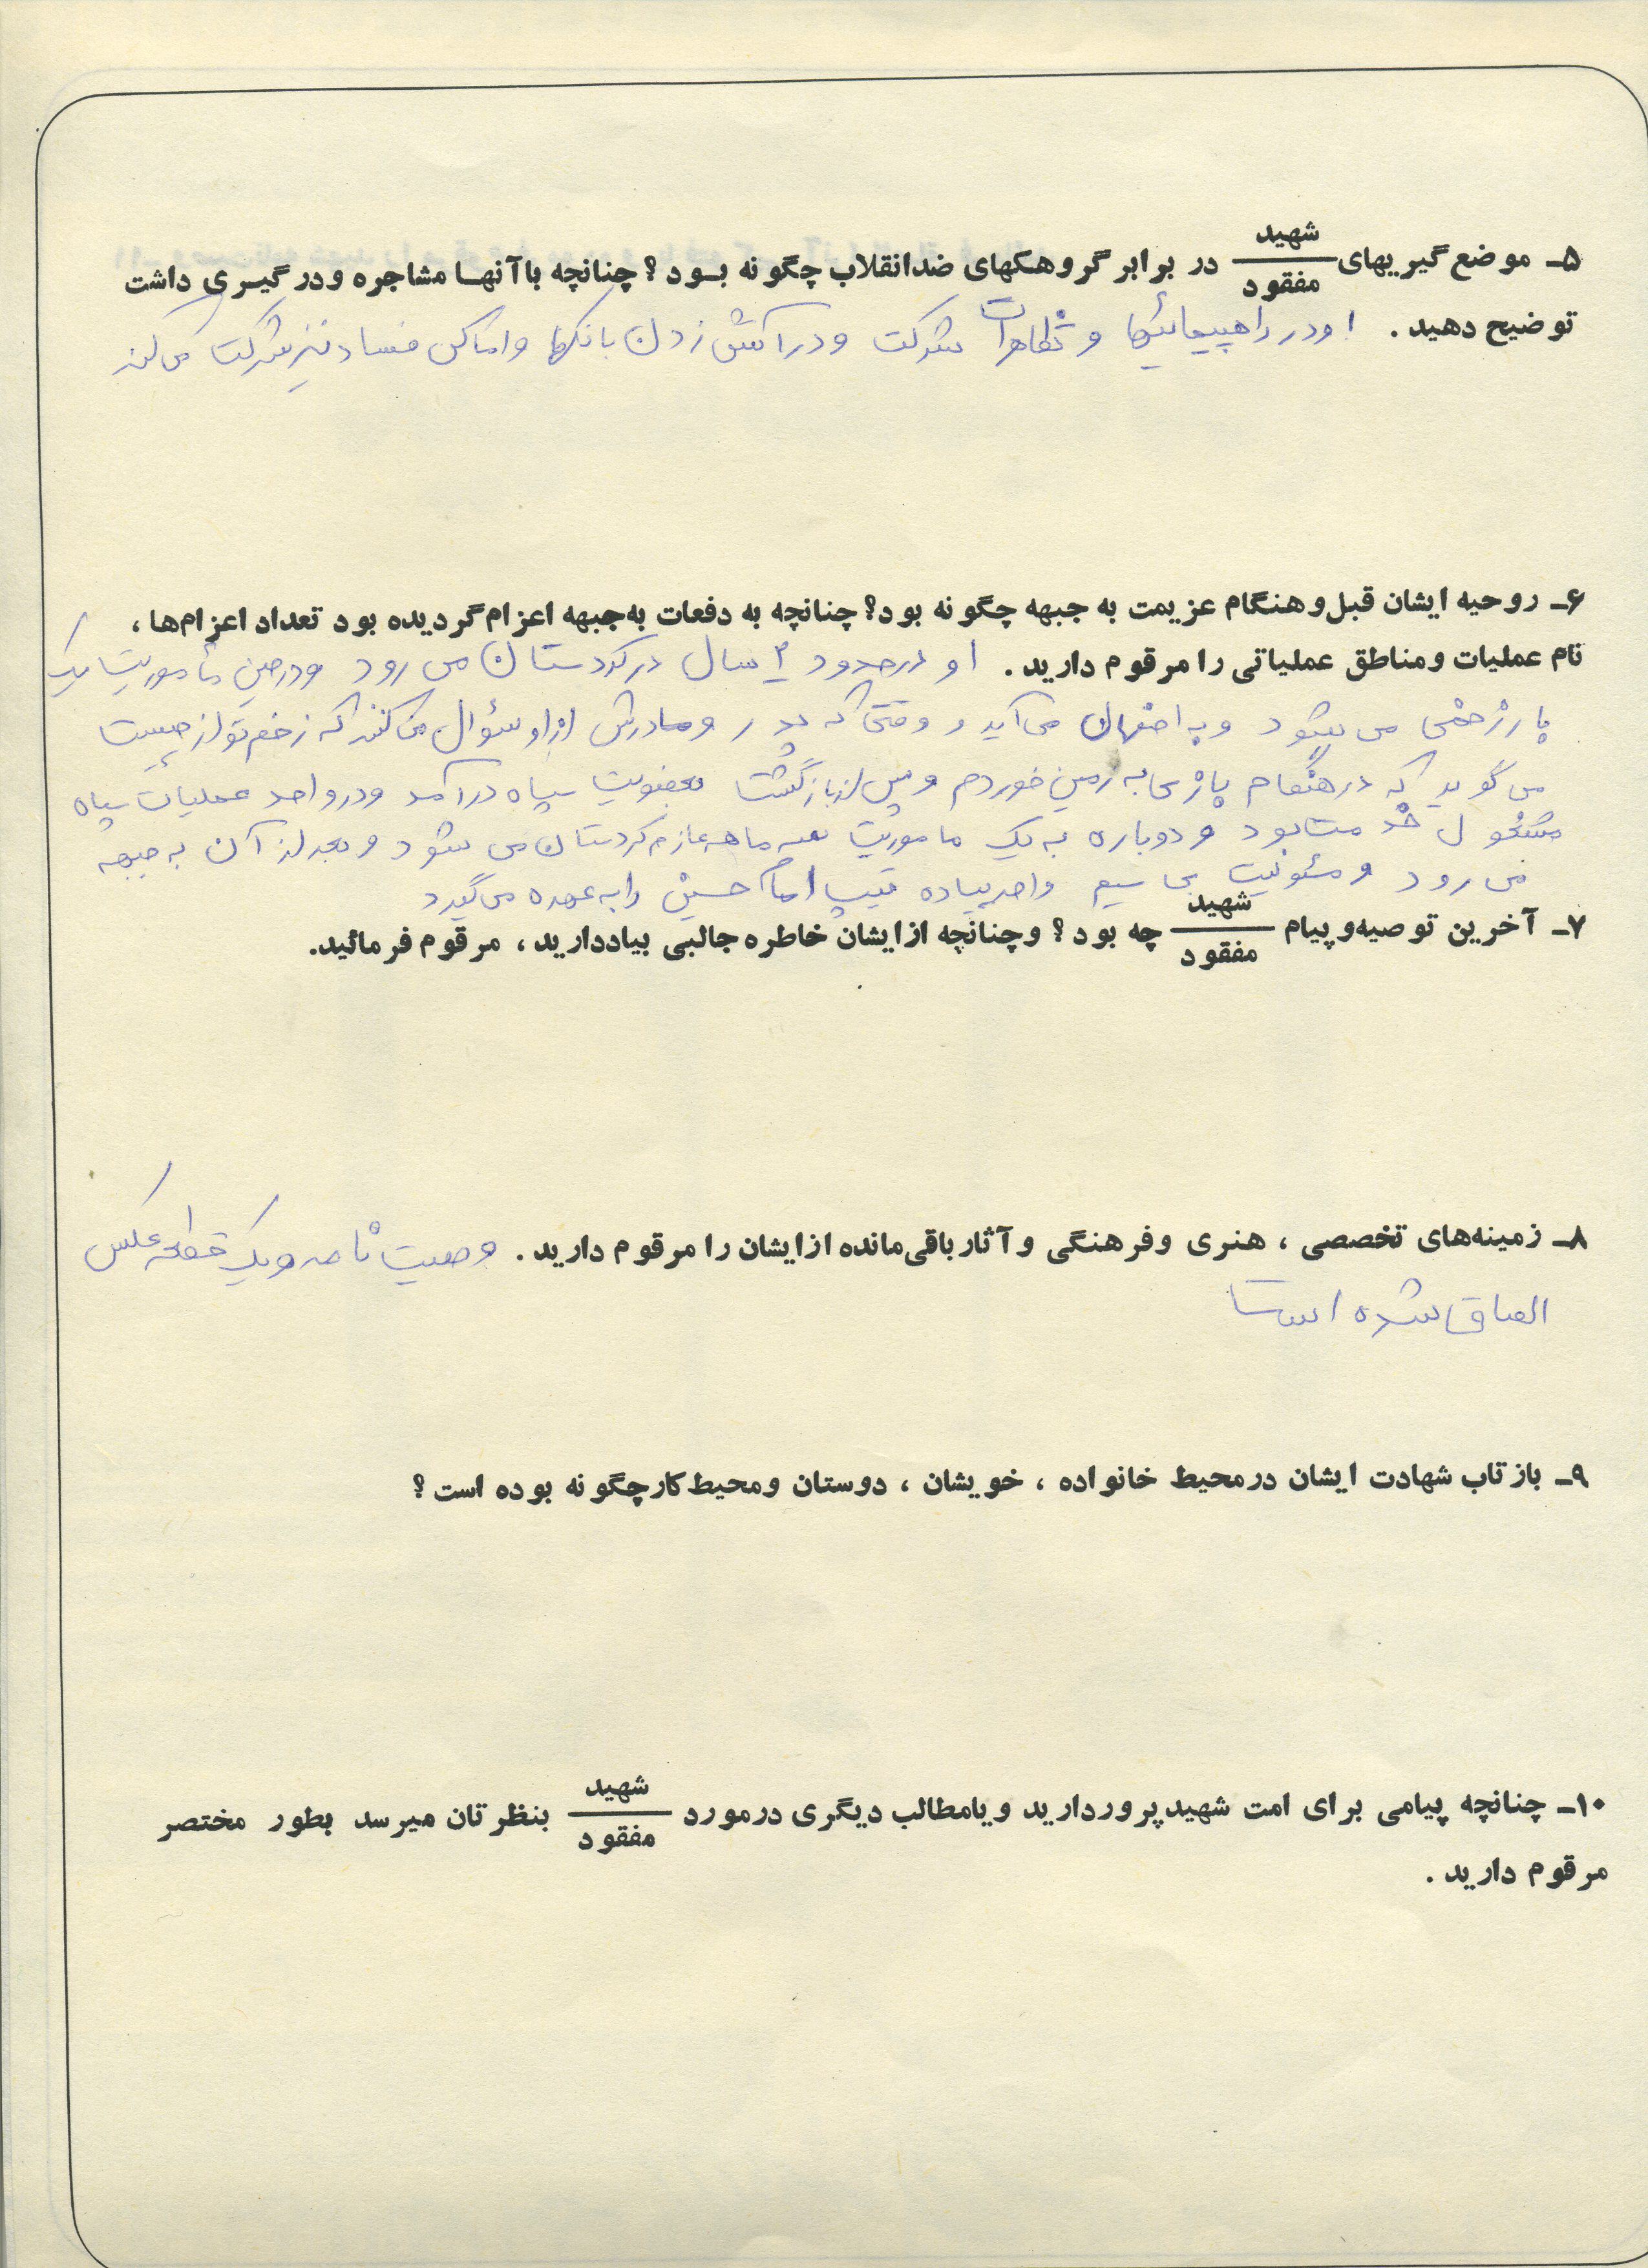 ۵ـ موضع گیریهای شهید/مفقود در برابر گروهکهای ضدانقلاب چگونه بود؟ چنانچه باآنها مشاجره ودرگیری داشت
توضیح دهید. اودر راهپیمائیها و تظاهرات شرکت ودرآتش زدن بانکها واماکن فساد نیز شرکت می کند
۶ـ روحیه ایشان قبل وهنگام عزیمت به جبهه چگونه بود؟ چنانچه به دفعات به جبهه اعزام گردیده بود تعداد اعزام‌ها،
نام عملیات ومناطق عملیاتی را مرقوم دارید. او درحدود ۲ سال در کردستان می رود ودرحین مأموریت یک
بار زخمی می شود و به اصفهان می آید و وقتی که پدر ومادرش از او سؤال می کنند که زخم تو از چیست
می گوید که درهنگام بازی به زمین خوردم و پس از بازگشت بعضویت سپاه درآمد ودر واحد عملیات سپاه
مشغول خدمت بود و دوباره به یک ماموریت سه ماهه عازم کردستان می شود و بعد از آن به جبهه
می رود و مسئولیت بی سیم واحد پیاده تیپ امام حسین را به عهده می گیرد
۷ـ آخرین توصیه وپیام شهید/مفقود چه بود؟ وچنانچه ازایشان خاطره جالبی بیاددارید، مرقوم فرمائید.
۸ـ زمینه‌های تخصصی، هنری وفرهنگی وآثار باقی‌مانده ازایشان را مرقوم دارید. وصیت نامه ویک قطعه عکس
الصاق شده است
۹ـ بازتاب شهادت ایشان درمحیط خانواده، خویشان، دوستان ومحیط کارچگونه بوده است؟
۱۰ـ چنانچه پیامی برای امت شهیدپروردارید ویامطالب دیگری درمورد شهید/مفقود بنظرتان میرسد بطور مختصر
مرقوم دارید.